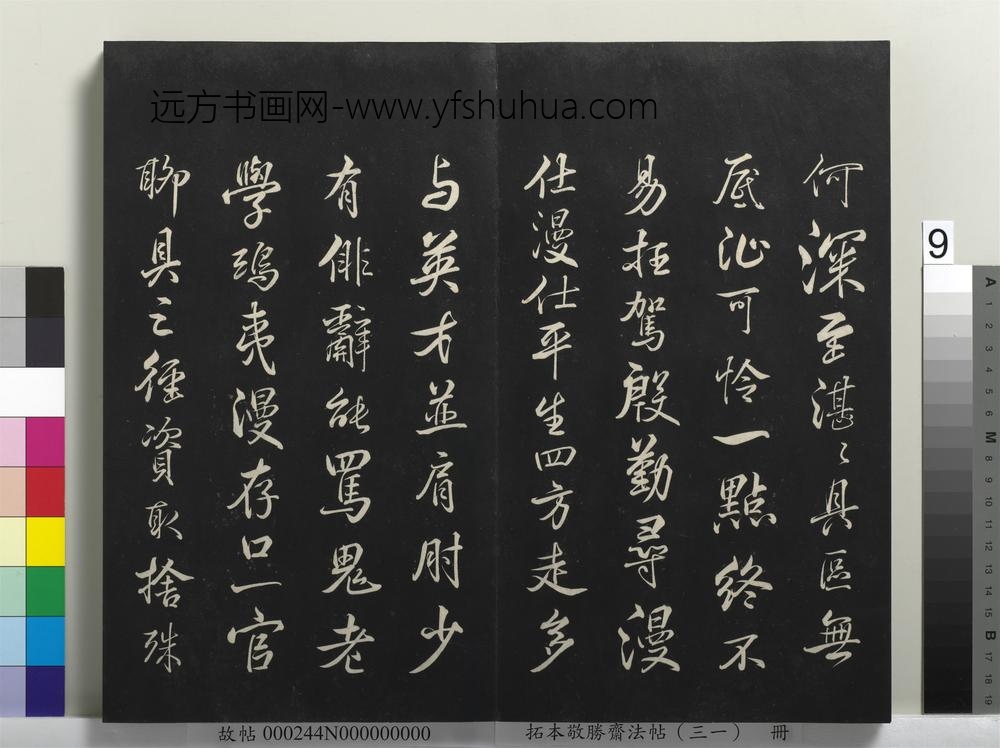 远方书画网-www.yfshuhua.com
何深至湛〻具區無
底沚可怜一點終不
易枉駕殷勤尋漫
仕漫仕平生四方走多
与英才並肩肘少
有俳辭能罵鬼老
學鴟夷漫存口一官
聊具三徑資取捨殊
9
故帖 000244N000000000
拓本敬勝齋法帖（三一） 冊
A
1
2
3
4
5
6
M
8
9
10
11
12
13
14
15
B
17
18
19